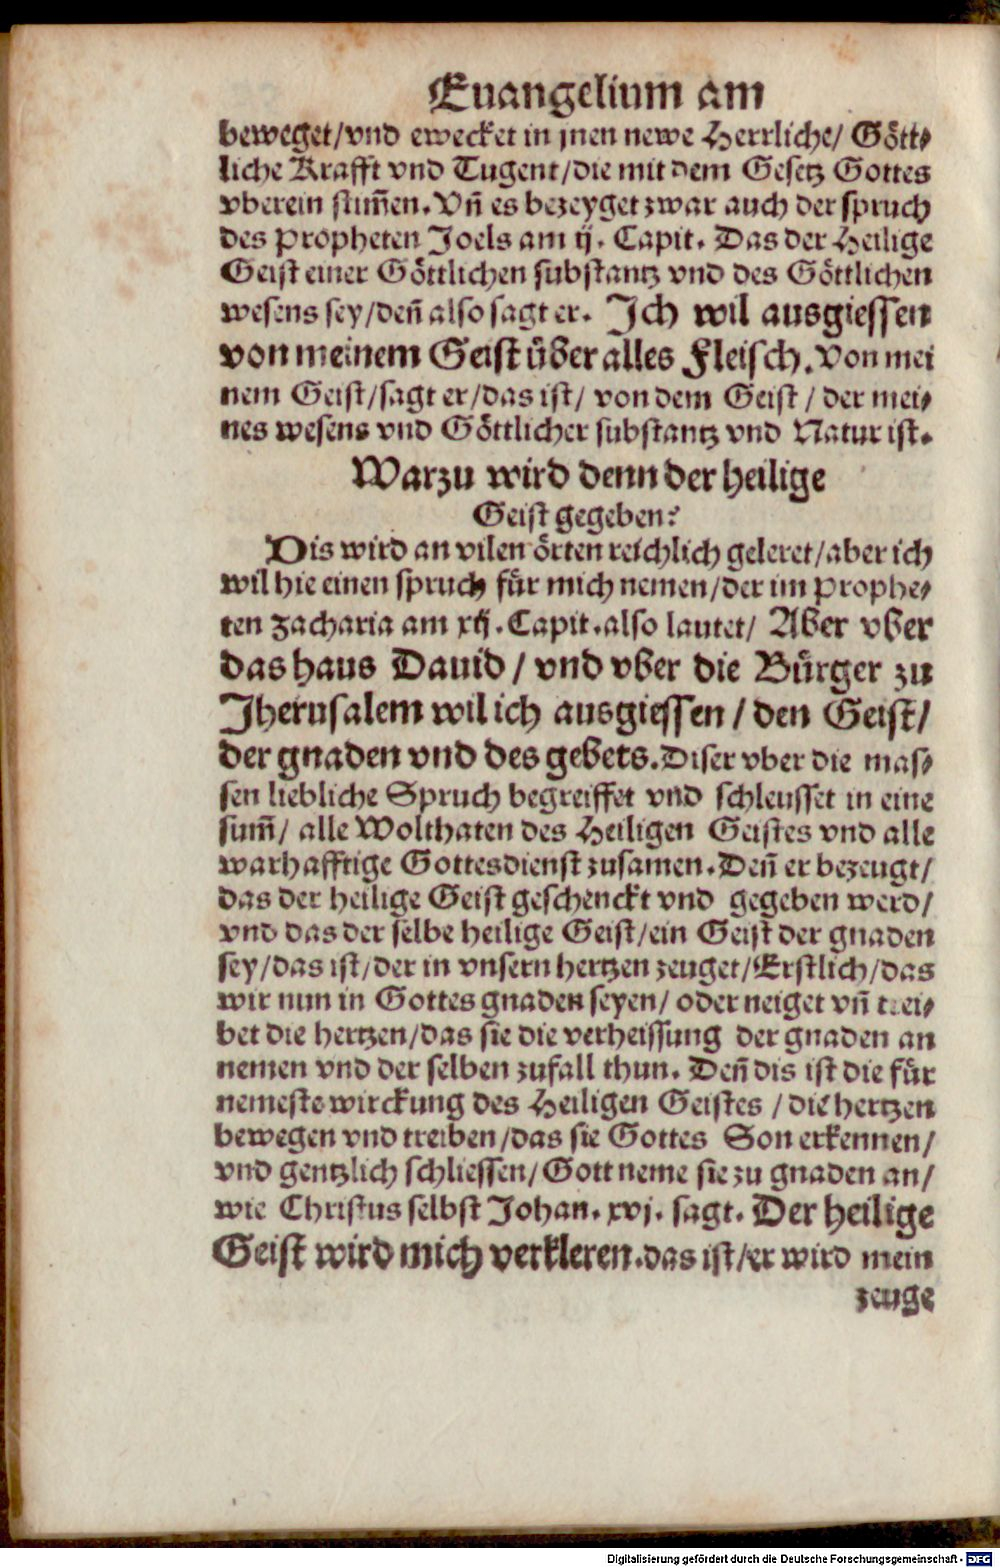 Euangelium am
beweget/vnd ewecket in jnen newe Herrliche/ Gött-
liche Krafft vnd Tugent/die mit dem Gesetz Gottes
vberein stim̄en. Vn̄ es bezeyget zwar auch der spruch
des Propheten Joels am ij. Capit. Das der Heilige
Geist einer Göttlichen substantz vnd des Göttlichen
wesens sey/den̄ also sagt er. Ich wil ausgiessen
von meinem Geist über alles Fleisch. Von mei
nem Geist/sagt er/das ist/ von dem Geist/ der mei-
nes wesens vnd Göttlicher substantz vnd Natur ist.
Warzu wird denn der heilige
Geist gegeben?
Dis wird an vilen örten reichlich geleret/aber ich
wil hie einen spruch für mich nemen/der im Prophe-
ten Zacharia am xij. Capit. also lautet/ Aber vber
das haus Dauid/ vnd vber die Bürger zu
Jherusalem wil ich ausgiessen/ den Geist/
der gnaden vnd des gebets. Diser vber die mas-
sen liebliche Spruch begreiffet vnd schleusset in eine
sum̄/ alle Wolthaten des Heiligen Geistes vnd alle
warhafftige Gottesdienst zusamen. Den̄ er bezeugt/
das der heilige Geist geschenckt vnd gegeben werd/
vnd das der selbe heilige Geist/ein Geist der gnaden
sey/das ist/der in vnsern hertzen zeuget/Erstlich/das
wir nun in Gottes gnaden seyen/ oder neiget vn̄ trei-
bet die hertzen/das sie die verheissung der gnaden an
nemen vnd der selben zufall thun. Den̄ dis ist die für
nemeste wirckung des Heiligen Geistes/ die hertzen
bewegen vnd treiben/das sie Gottes Son erkennen/
vnd gentzlich schliessen/Gott neme sie zu gnaden an/
wie Christus selbst Johan. xvj. sagt. Der heilige
Geist wird mich verkleren. das ist/er wird mein
zeuge
Digitalisierung gefördert durch die Deutsche Forschungsgemeinschaft - DFG